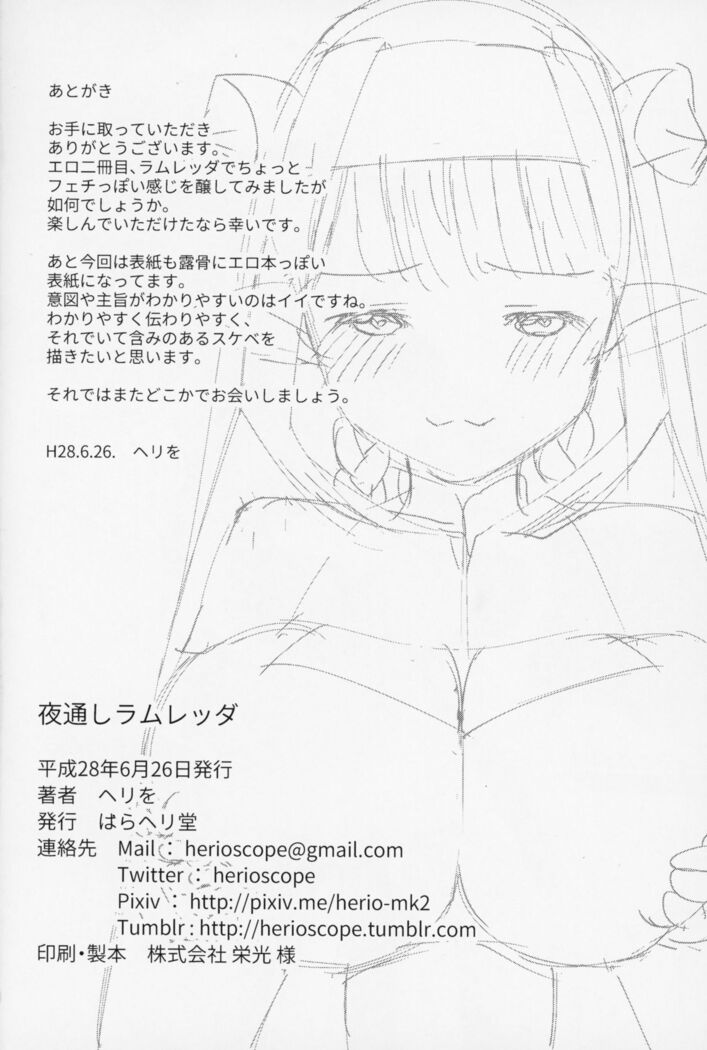 あとがき
お手に取っていただき
ありがとうございます。
エロ二冊目、ラムレッダでちょっと
フェチっぽい感じを醸してみましたが
如何でしょうか。
楽しんでいただけたなら幸いです。
あと今回は表紙も露骨にエロ本っぽい
表紙になってます。
意図や主旨がわかりやすいのはイイですね。
わかりやすく伝わりやすく、
それでいて含みのあるスケベを
描きたいと思います。
それではまたどこかでお会いしましょう。
H28.6.26. ヘリを
夜通しラムレッダ
平成28年6月26日発行
著者 ヘリを
発行 はらヘリ堂
連絡先 Mail : herioscope@gmail.com
Twitter : herioscope
Pixiv : http://pixiv.me/herio-mk2
Tumblr : http://herioscope.tumblr.com
印刷・製本 株式会社 栄光 様